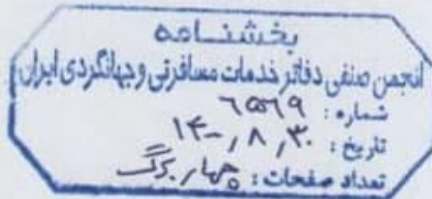 بخشنامه
انجمن صنفی دفاتر خدمات مسافرتی و جهانگردی ایران
شماره: ۶۵۶۹
تاریخ: ۱۴۰۰/۸/۳۰
تعداد صفحات: چهار برگ